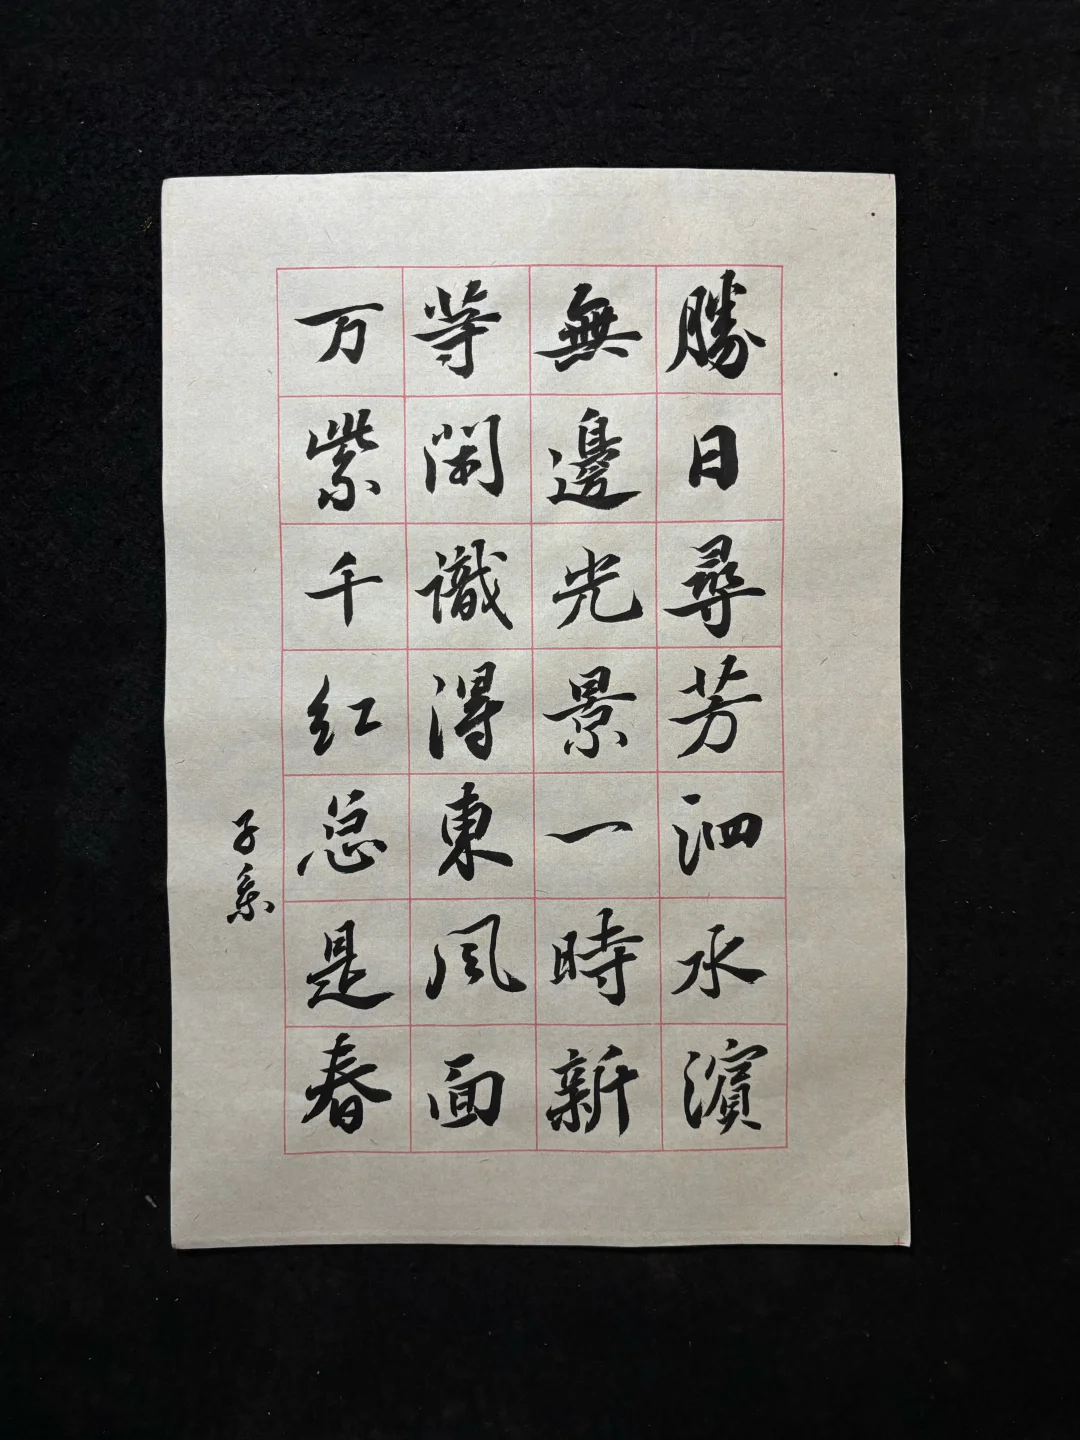 勝日尋芳泗水濱
無邊光景一時新
等閑識得東風面
万紫千红总是春
子系